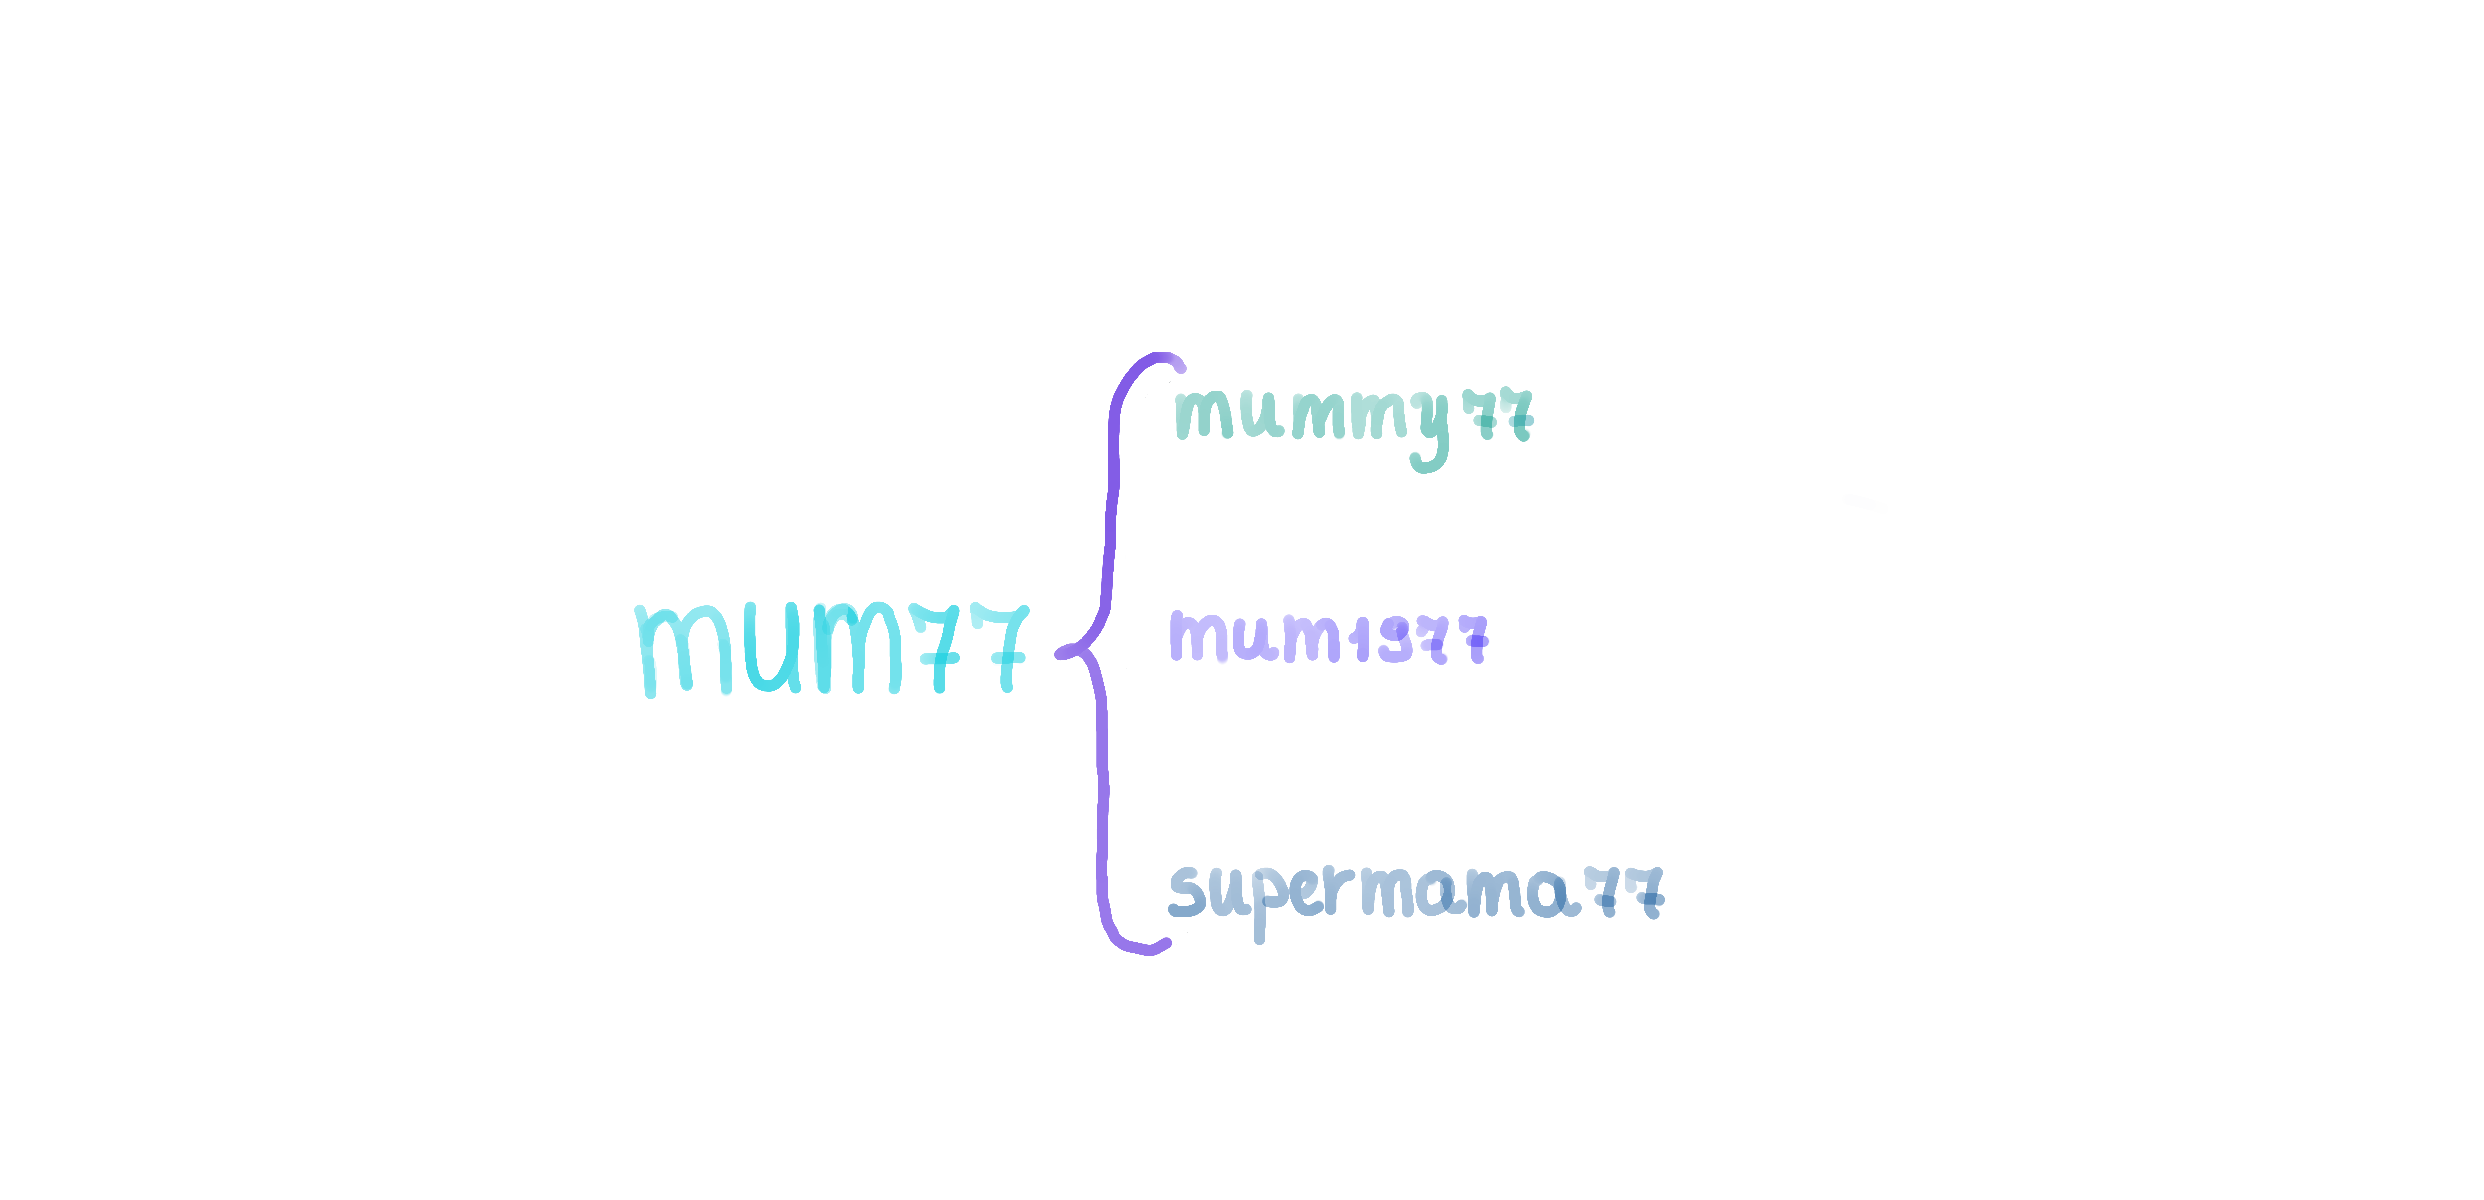 mummy77
mum77
mum1977
supermama77